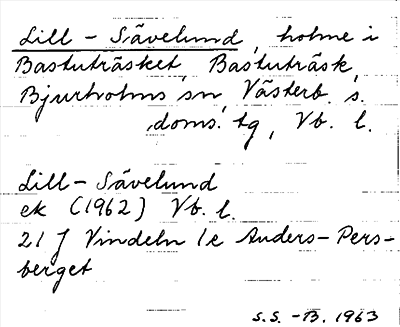 Lill-Sävelund, holme i
Bastuträsket, Bastuträsk,
Bjurholms sn, Västerb. s.
doms. tg, Vb. l.
Lill-Sävelund
ek (1962) Vb. l.
21 J Vindeln 1e Anders-Pers-
berget
S.S. -B. 1963